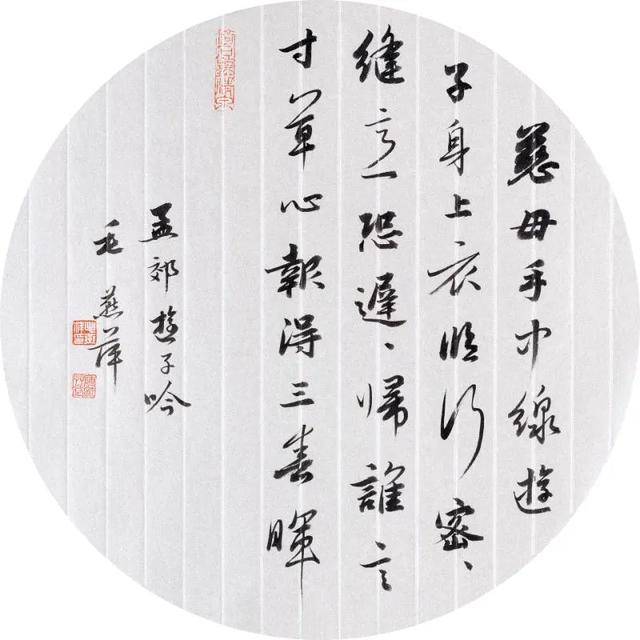 慈母手中線遊
子身上衣臨行密、
縫意恐遲、歸誰言
寸草心報得三春暉
孟郊遊子吟
毛燕萍